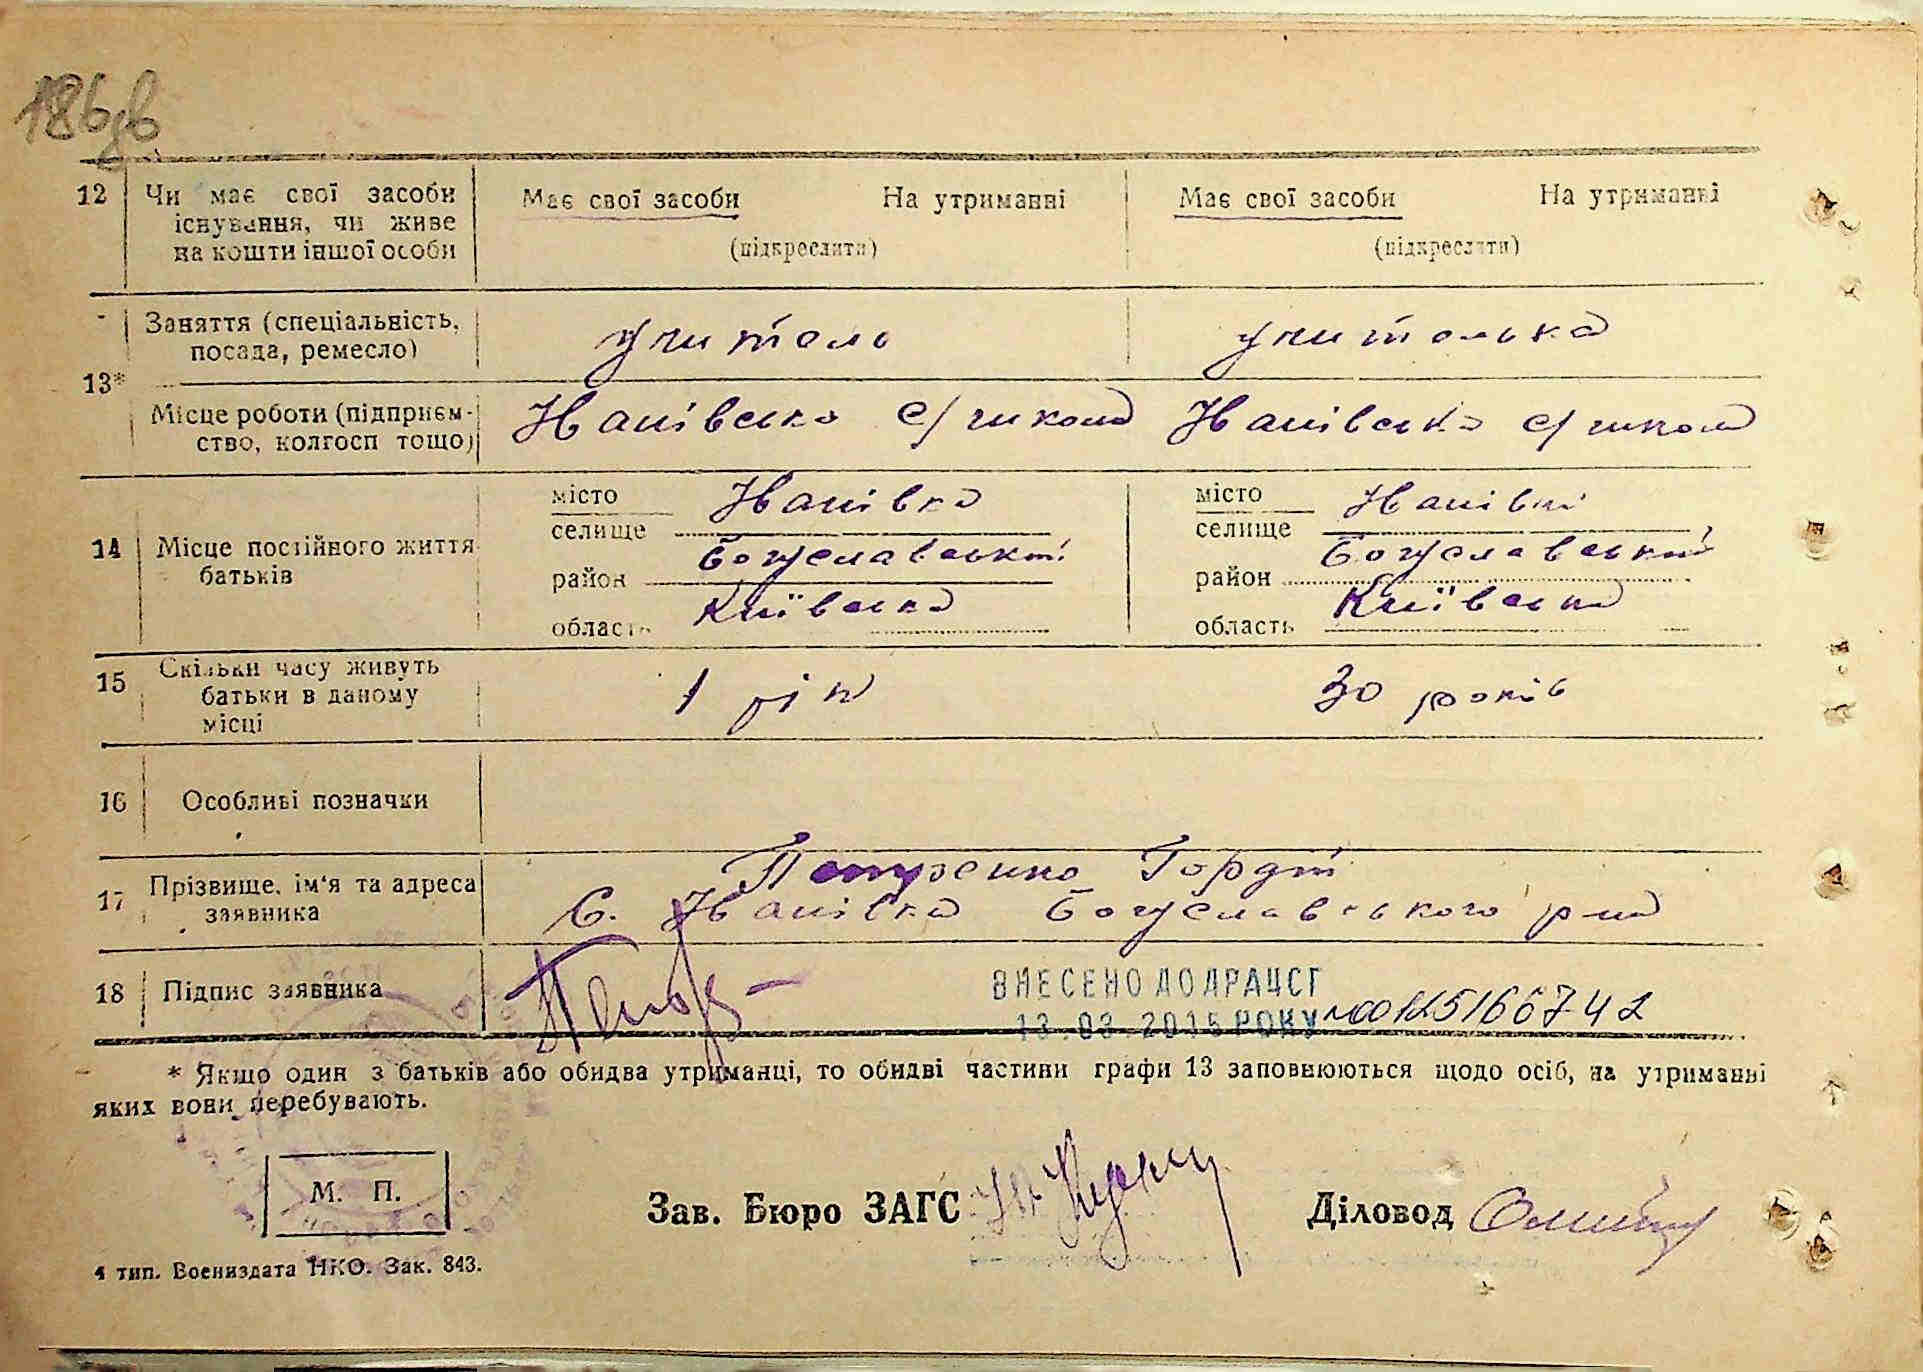 186зв
12 Чи має свої засоби існування, чи живе на кошти іншої особи
Має свої засоби На утриманні (підкреслити)
Має свої засоби На утриманні (підкреслити)
13* Заняття (спеціальність, посада, ремесло)
учитель учителька
Місце роботи (підприєм-
ство, колгосп тощо)
с/школа с/школа
14 Місце постійного життя батьків
місто
селище
район Богуславський
область Київська
місто
селище
район Богуславський
область Київська
15 Скільки часу живуть батьки в даному місці
1 рік 30 років
16 Особливі позначки
17 Прізвище, ім'я та адреса заявника
Гордій
с. Богуславського р-на
18 Підпис заявника
ВНЕСЕНО ДО ДРАЦСГ
13.03.2015 РОКУ
* Якщо один з батьків або обидва утриманці, то обидві частини графи 13 заповнюються щодо осіб, на утриманні
яких вони перебувають.
М. П.
Зав. Бюро ЗАГС Діловод
4 тип. Воениздата НКО. Зак. 843.